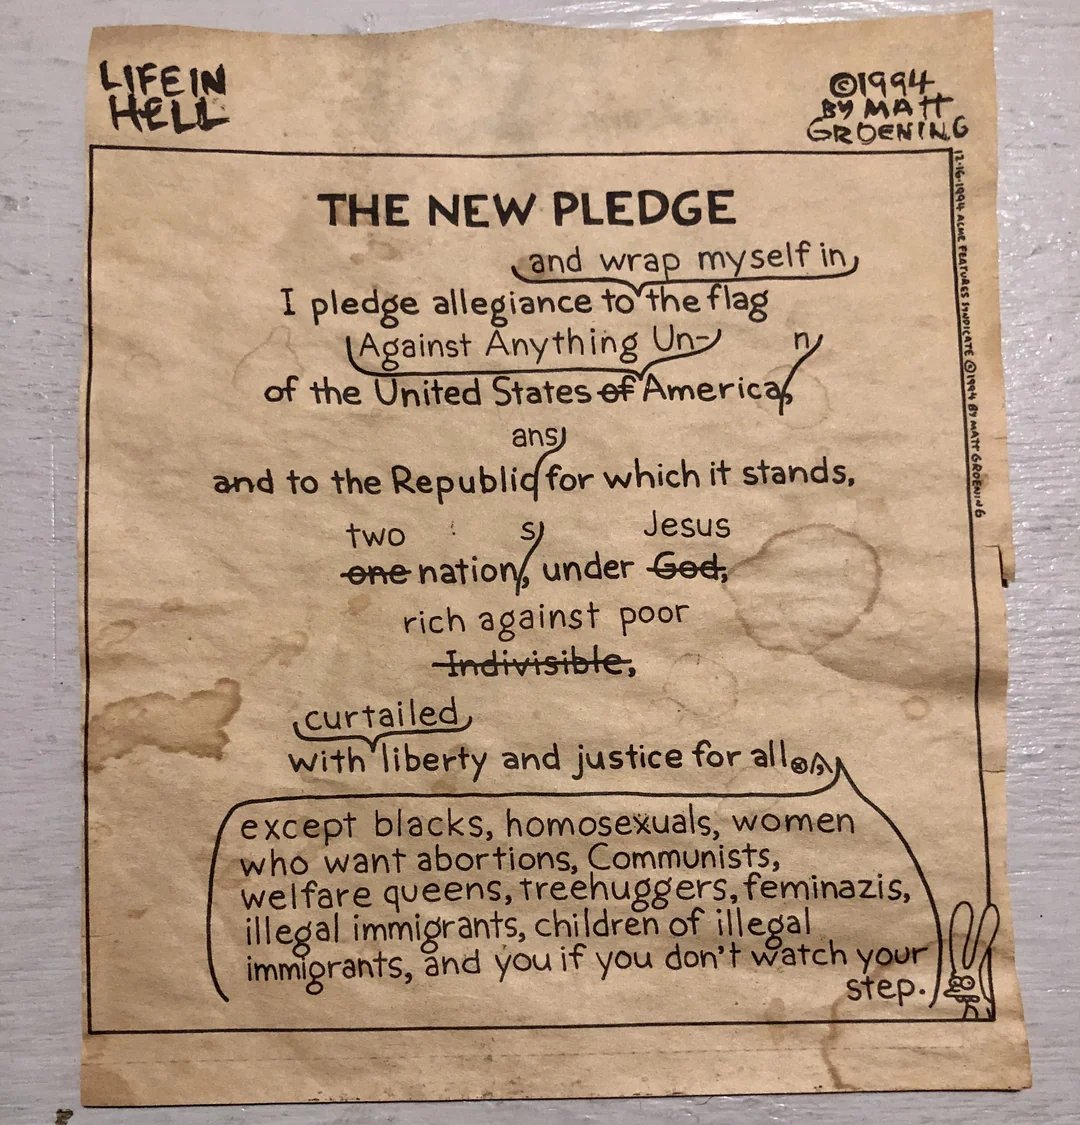 LIFE IN
HELL
©1994
BY MATT
GROENING
12·16·1994 ACME FEATURES SYNDICATE ©1994 BY MATT GROENING
THE NEW PLEDGE
and wrap myself in
I pledge allegiance to the flag
Against Anything Un- n
of the United States of America,
ans
and to the Republic for which it stands,
two s Jesus
one nation, under God,
rich against poor
Indivisible,
curtailed
with liberty and justice for all.,
except blacks, homosexuals, women
who want abortions, Communists,
welfare queens, treehuggers, feminazis,
illegal immigrants, children of illegal
immigrants, and you if you don't watch your
step.